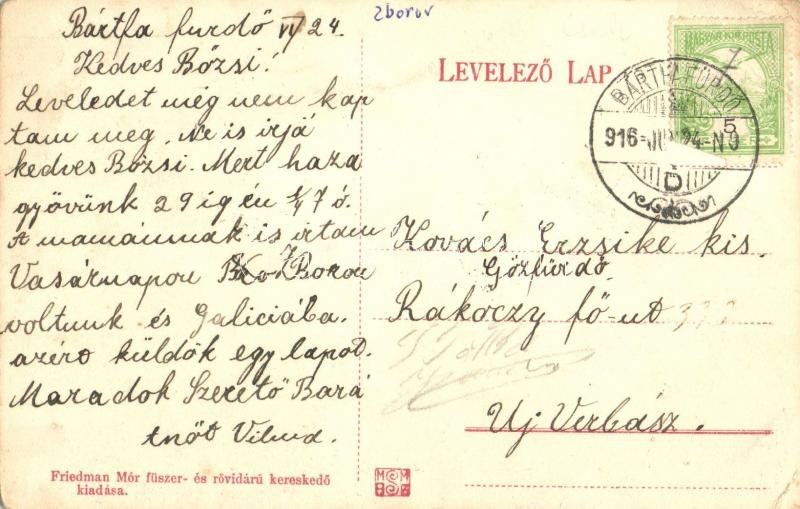 zborov
Bártfa furdő VI/24.
Kedves Bőzsi!
Leveledet még nem kap
tam meg. Ne is irjá
kedves Bőzsi. Mert haza
gyövünk 29 ig én 7 ó.
A mamámnak is irtam
Vasárnapon Boron
voltunk és Galiciába.
azért küldök egy lapot.
Maradok Szerető Bará
tnőd
LEVELEZŐ LAP
MAGYAR KIR. POSTA
5
BÁRTFAFÜRDŐ
916
24-N9
D
Kovács Erzsike kis.
Gőzfürdő
Rákóczy fő-ut
Uj Verbász.
Friedman Mór füszer- és rövidárú kereskedő
kiadása.